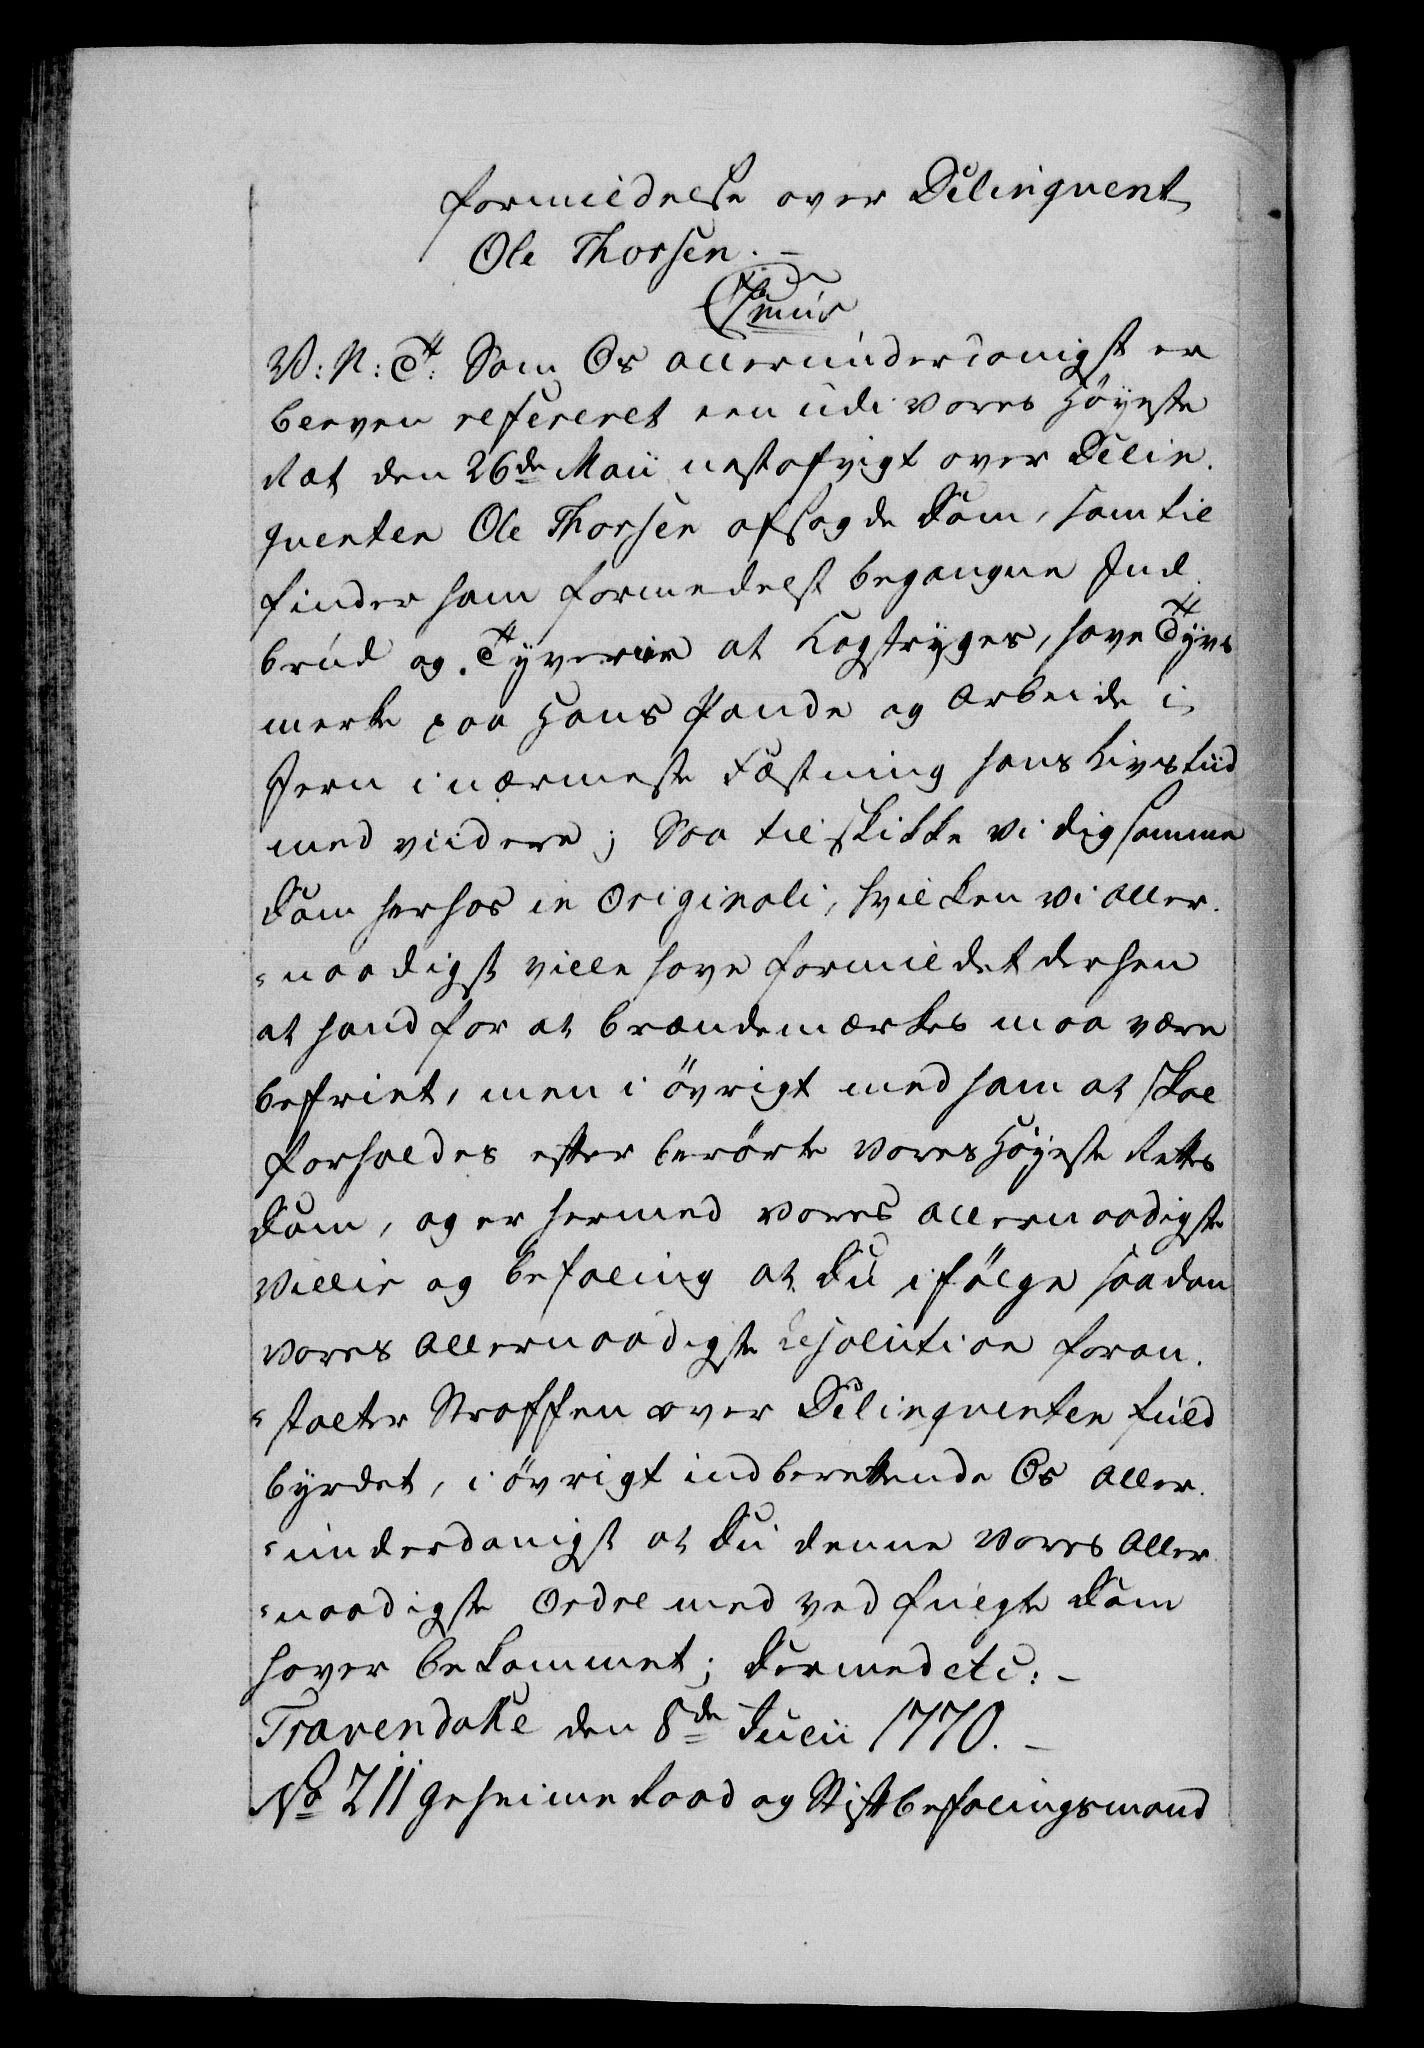 formildelse over Delinqvent
Ole Thorsen. –
V: N: T: Som Os allerunderdanigst er
bleven refereret een udi vores Höyeste
Ræt den 26de Maii nestafvigt over Delin-
qventen Ole Thorsen afsagde Dom, som til
finder ham formedelst begangne Ind
brud og Tyverier at kagstryges, have Tyvs
merke paa Hans Pande og Arbeide i
Jern i nærmeste Fæstning hans Livstiid
med viidere; Saa tilskikke vi dig samme
Dom herhos in Originali, hvilken vi aller-
naadigst ville have formildet derhen
at hand for at brændemærkes maa være
befriet, men i övrigt med ham at skal
forholdes efter berörte vores Höyeste Retts
Dom, og er hermed vores allernaadigste
Villie og befaling at Du i fölge saadan
vores allernaadigste Resolution foran-
stalter Straffen over Delinqventen fuld
byrdet, i övrigt indberettende Os aller-
underdanigst at Du denne vores aller
naadigste Ordre med vedfuigte Dom
haver bekommet; Dermed etc: –
Travendahl den 8de Julii 1770. –
No 211 Geheime Raad og Stiftbefalingsmand